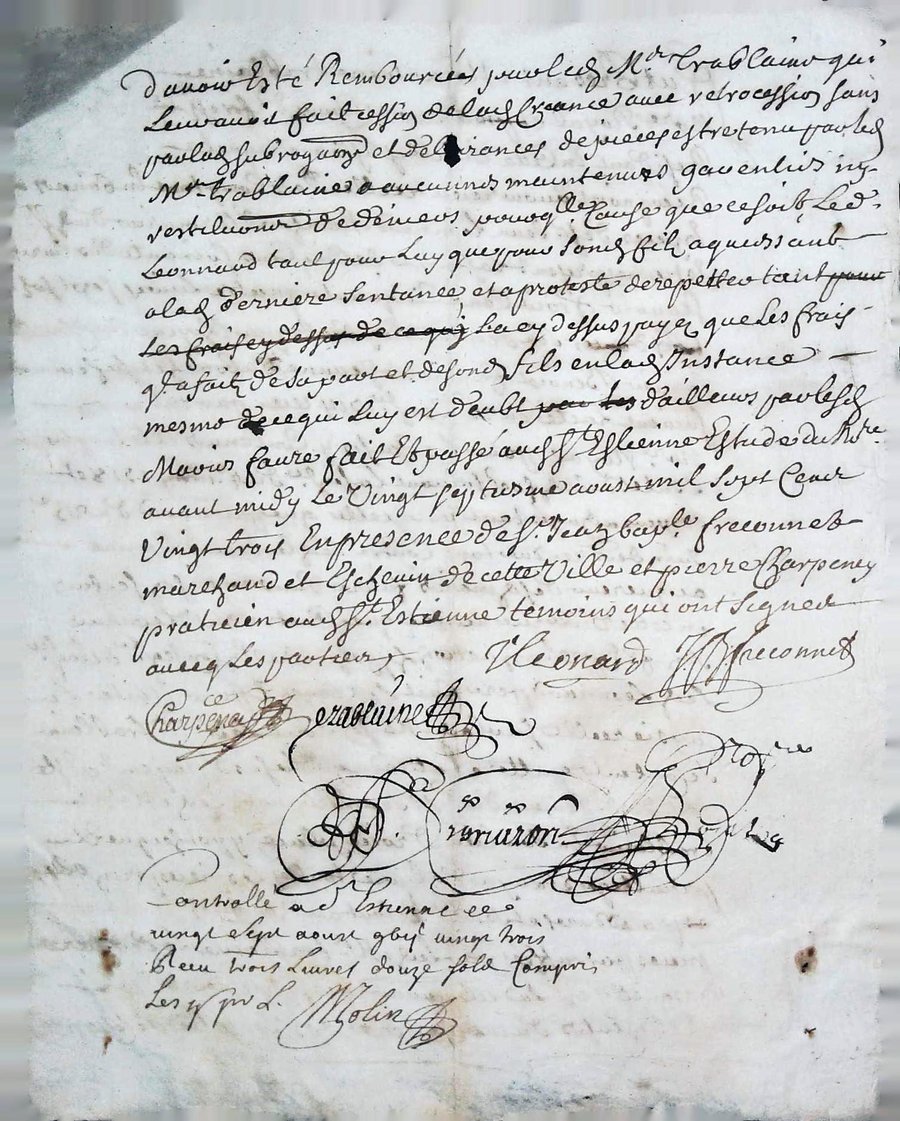 d'avoir Esté Remboursées par led Mr. Trablaine qui
Leur avoit fait cession de lad Creance avec retrocession sans
par lad subrogaon et delivrances de pieces estre tenu par led
Mr. trablaine a aucunnes maintenues garenties ny
restituons de deniers pour qlle Cause que ce soit, Led.
Leonnard tant pour Luy que pour sond fils acquiessant
a lad derniere sentance et a proteste de repetter tant pour
Les frais cy dessus de ce qu'il La cy dessus payez que Les frais
ql a fait de sa part et de sond fils en lad Instance
mesme de ce qui Luy est deubt par les d'ailleurs par lesd
Mariés faure fait Et passé aud St. Estienne Estude du Nre.
avant midy Le Vingt septiesme aoust mil Sept Cent
Vingt trois En presence de Sr. Jean bapte. freconnet
marchand et Eschevin de cette Ville et pierre Charpenay
praticien aud St. Estienne temoins qui ont Signes
avecq Les parties
Leonard JB freconnet
Charpenay trablaine
Controllé a St Estienne ce
vingt Sept aoust vingt trois
Receu trois Livres douze sols Compris
Les
Molin